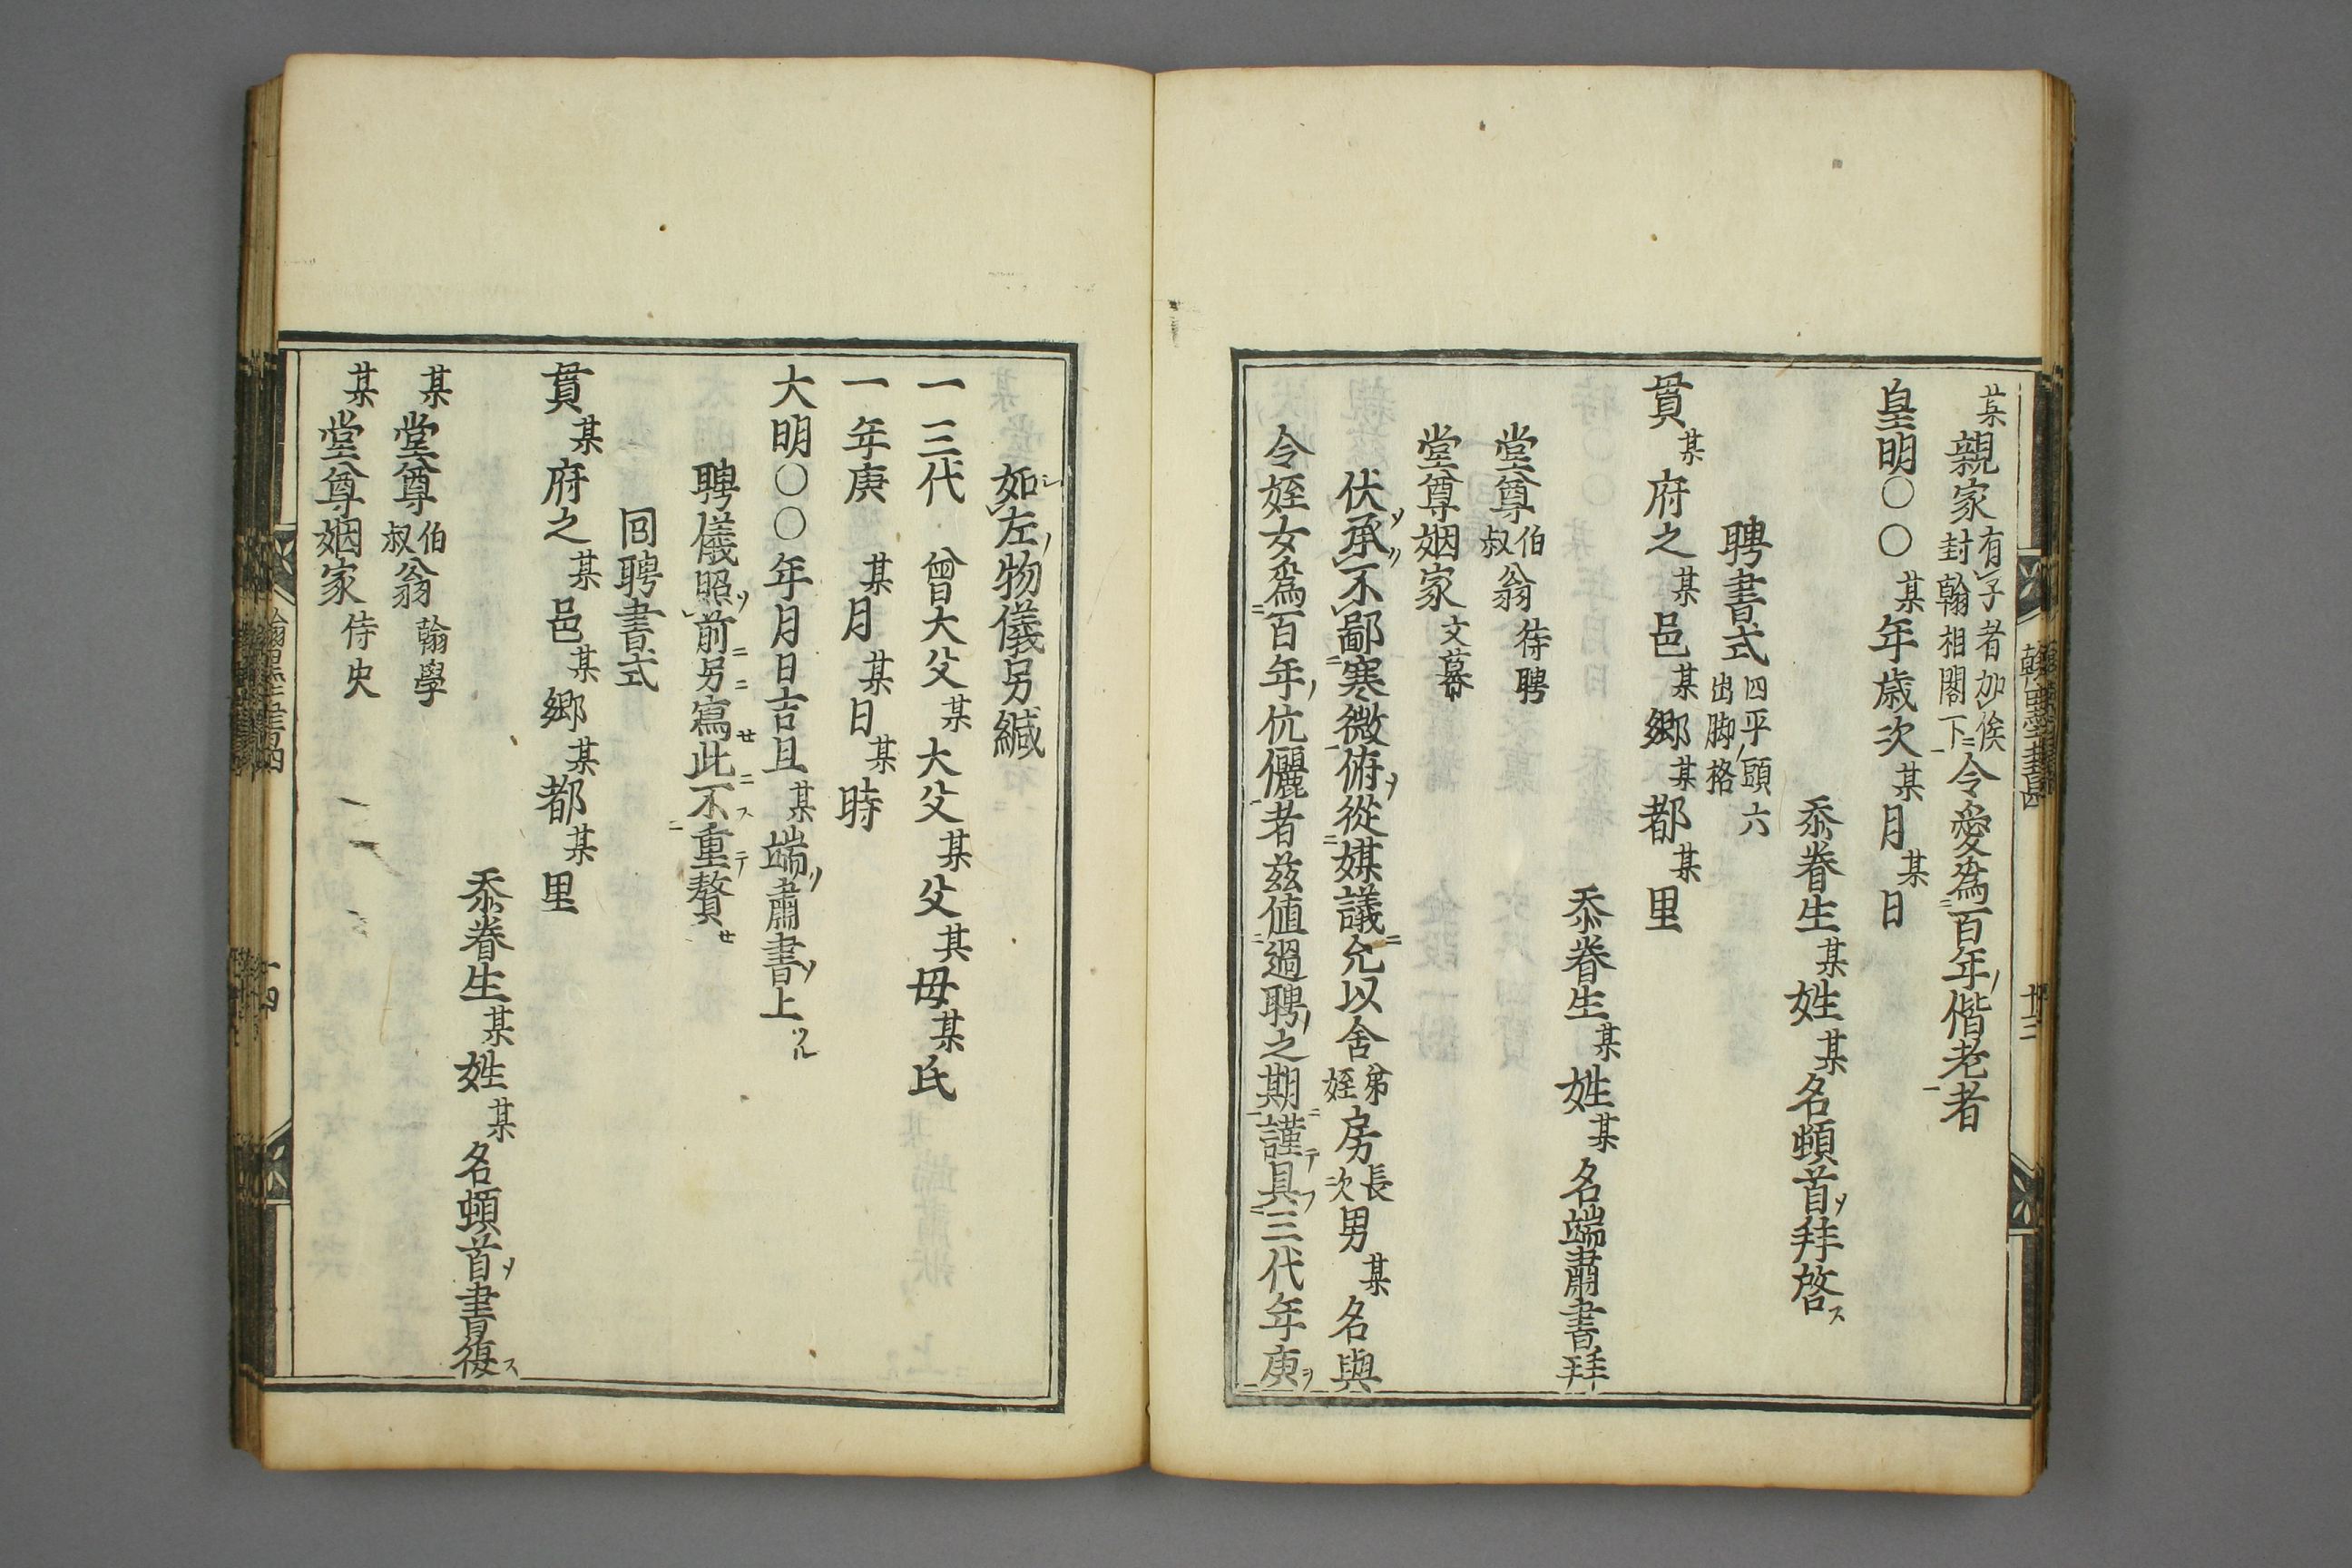 某親家有子者加俟封翰相閣下令愛爲百年偕老者
皇明〇〇某年歳次某月某日
忝眷生某姓某名頓首拜啓ス
聘書式四平頭六出脚格
貫某府之某邑某郷某都某里
忝眷生某姓某名端肅書拜
堂尊伯叔翁待聘
堂尊姻家文幕
伏承不鄙寒微俯從媒議允以舍弟姪房長次男某名與
令姪女爲百年伉儷者茲値過聘之期謹具三代年庚
如左物儀另緘
一三代 曾大父某大父某父某母某氏
一年庚 某月某日某時
大明〇〇年月日吉旦某端肅書上ツル
聘儀照前另寫此不重贅
回聘書式
貫某府之某邑某郷某都某里
忝眷生某姓某名頓首書復ス
某堂尊伯叔翁翰學
某堂尊姻家侍史